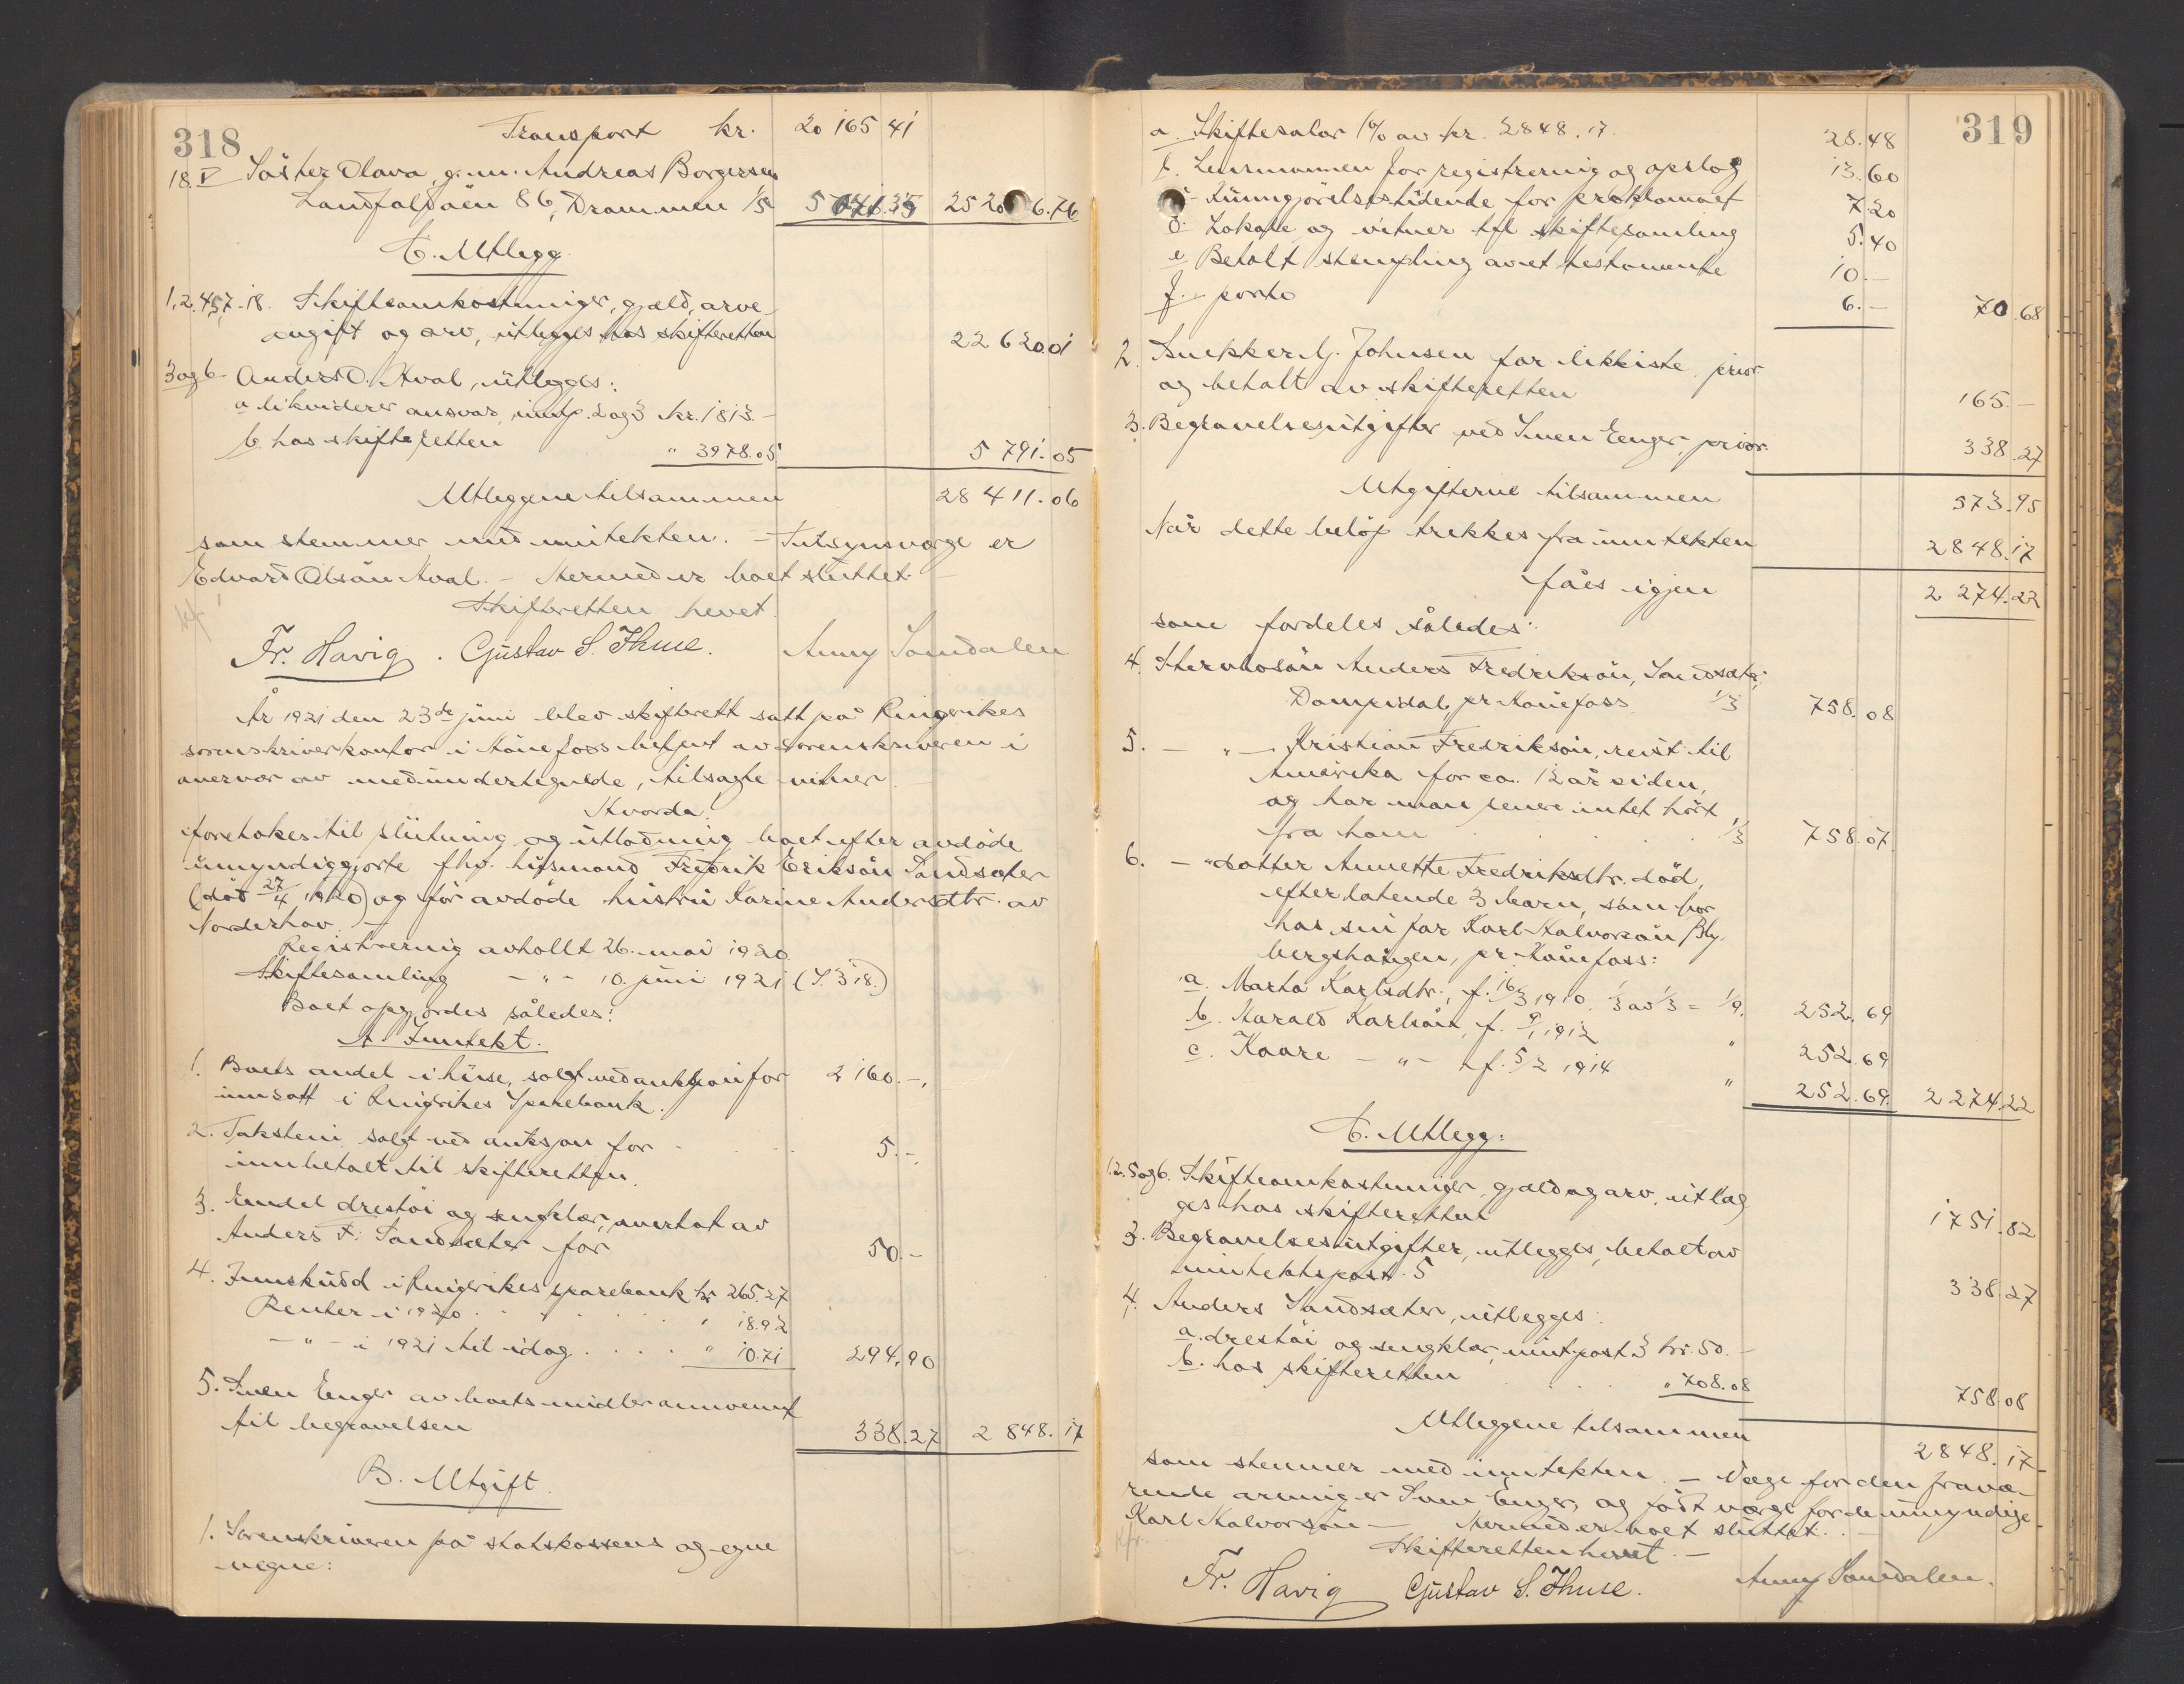 318
Transport kr. 20 165 41
18. V Søster Olava, g. m. Andreas Borgersen
Landfaldøen 86, Drammen 1/5 5 041.35 25 206.76
C. Utlegg.
1, 2, 4, 5, 7-18. Skifteomkostninger, gjæld, arve-
avgift og arv, utlegges hos skifteretten 22 620.01
3 og 6 Anders O. Hval, utlegges:
a. likviderer ansvar, inntp. 2 og 3 kr. 1813.-
b. hos skifteretten " 3978.05 5 791.05
Utleggene tilsammen 28 411.06
som stemmer med inntekten. - Tilsynsverge er
Edvard Olsøn Hval. - Hermed er boet sluttet.
Skifteretten hevet.
Fr. Havig. Gustav S. Thue. Anny Somdalen
År 1921 den 23de juni blev skifterett satt på Ringerikes
sorenskriverkontor i Hønefoss betjent av sorenskriveren i
overvær av medundertegnede, tilsagte vitner.
Hvorda:
foretokes til slutning og utlodning boet efter avdøde
umyndiggjorte fhv. husmand Fredrik Eriksøn Sandsæter
(død 27/4 1920) og før avdøde hustru Karine Andersdtr. av
Norderhov. -
Registrering avholdt 26. mai 1920
Skiftesamling - " - 10. juni 1921 (S. 318.)
Boet opgjordes således:
A. Inntekt.
1. Boets andel i huse, solgt ved auksjon for 2 160.-,
innsatt i Ringerikes Sparebank.
2. Taksten solgt ved auksjon for 5.-,
innbetalt til skifteretten.
3. Endel drestøi og sengklær, overtat av
Anders F. Sandsæter for 50.-
4. Innskudd i Ringerikes sparebank kr 265.27
Renter i 1920 " 18.92
- " - i 1921 til idag . . . . " 10.71 294.90
5. Sven Enger av boets midler annvennt
til begravelsen 338.27 2 848.17
B. Utgift.
1. Sorenskriveren på statskassens og egne
vegne:
319
a. Skiftesalær 1% av kr. 2848.17. 28.48
b. Lensmannen for registrering og opslag 13.60
c. Kunngjørelsestidende for proklamaet 7.20
d. Lokale og vitner til skiftesamling 5.40
e. Betalt stempling av et testamente 10.-
f. porto 6.- 70.68
2. Snekker G. Johnsen for likkiste, prior.
og betalt av skifteretten 165.-
3. Begravelsesutgifter ved Sven Enger, prior. 338.27
Utgifterne tilsammen 573.95
Når dette beløp trekkes fra inntekten 2848.17
fåes igjen 2 274.22
som fordeles således:
4. Stervbosøn Anders Fredriksøn, Sandsæter,
pr Hønefoss 1/3 758.08
5. - " - Kristian Fredriksøn, reist til
Amerika for ca. 12 år siden,
og har man senere intet hørt
fra ham . . . 1/3 758.07
6. - " datter Annette Fredriksdtr. død,
efterlatende 3 barn, som bor
hos sin far Karl Halvorsøn, Bly-
berghaugen, pr. Hønefoss:
a. Marta Karlsdtr., f. 16/3 1910. 1/3 av 1/3 = 1/9. 252.69
b. Harald Karlsøn, f. 9/1 1912 " 252.69
c. Kaare - " - f. 5/2 1914 " 252.69. 2 274.22
C. Utlegg:
1. 2. 5 og 6. Skifteomkostninger, gjæld og arv, utleg-
ges hos skifteretten 1751.82
3. Begravelsesutgifter, utlegges, betalt av
inntektspost 5 338.27
4. Anders Sandsæter, utlegges:
a. drestøi og sengklær, inntpost 3 kr. 50.-
b. hos skifteretten . . . " 708.08 758.08
Utleggene tilsammen 2848.17
som stemmer med inntekten. - Verge for den fravæ-
rende arving er Sven Enger, og født verge for de umyndige
Karl Halvorsøn - Hermed er boet sluttet. -
Skifteretten hevet. -
Fr. Havig Gustav S. Thue. Anny Somdalen.